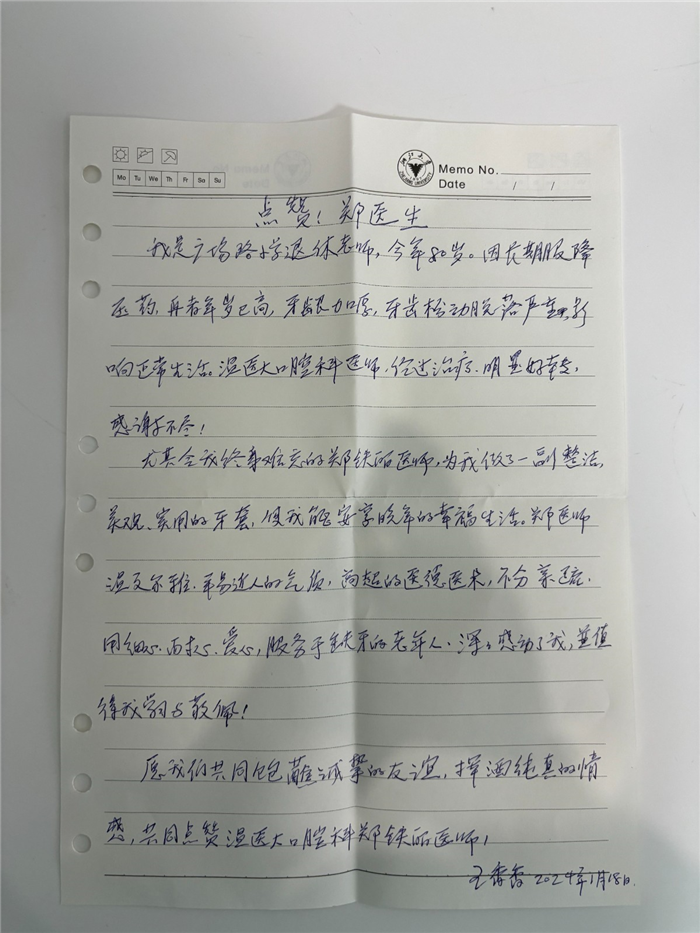 浙江大学
ZHEJIANG UNIVERSITY
Memo No.
Mo Tu We Th Fr Sa Su
Date / /
点赞!郑医生
我是广场路小学退休老师,今年80岁。因长期服降
压药,再者年岁已高,牙龈力口厚,牙齿松动脱落严重,影
响正常生活。温医大口腔科医师,经过治疗、明显好转,
感谢不尽!
尤其令我终身难忘的郑铁丽医师,为我做了一副整洁、
美观、实用的牙套,使我能安享晚年的幸福生活。郑医师
温文尔雅、平易近人的气质,高超的医德医术,不分亲疏、
用细心、耐心、爱心,服务于缺牙的老年人、深深感动了我,并值
得我学习与敬佩!
愿我们共同饱蘸诚挚的友谊,挥洒纯真的情
感,共同点赞温医大口腔科郑铁丽医师!
王香香 2024年1月18日.